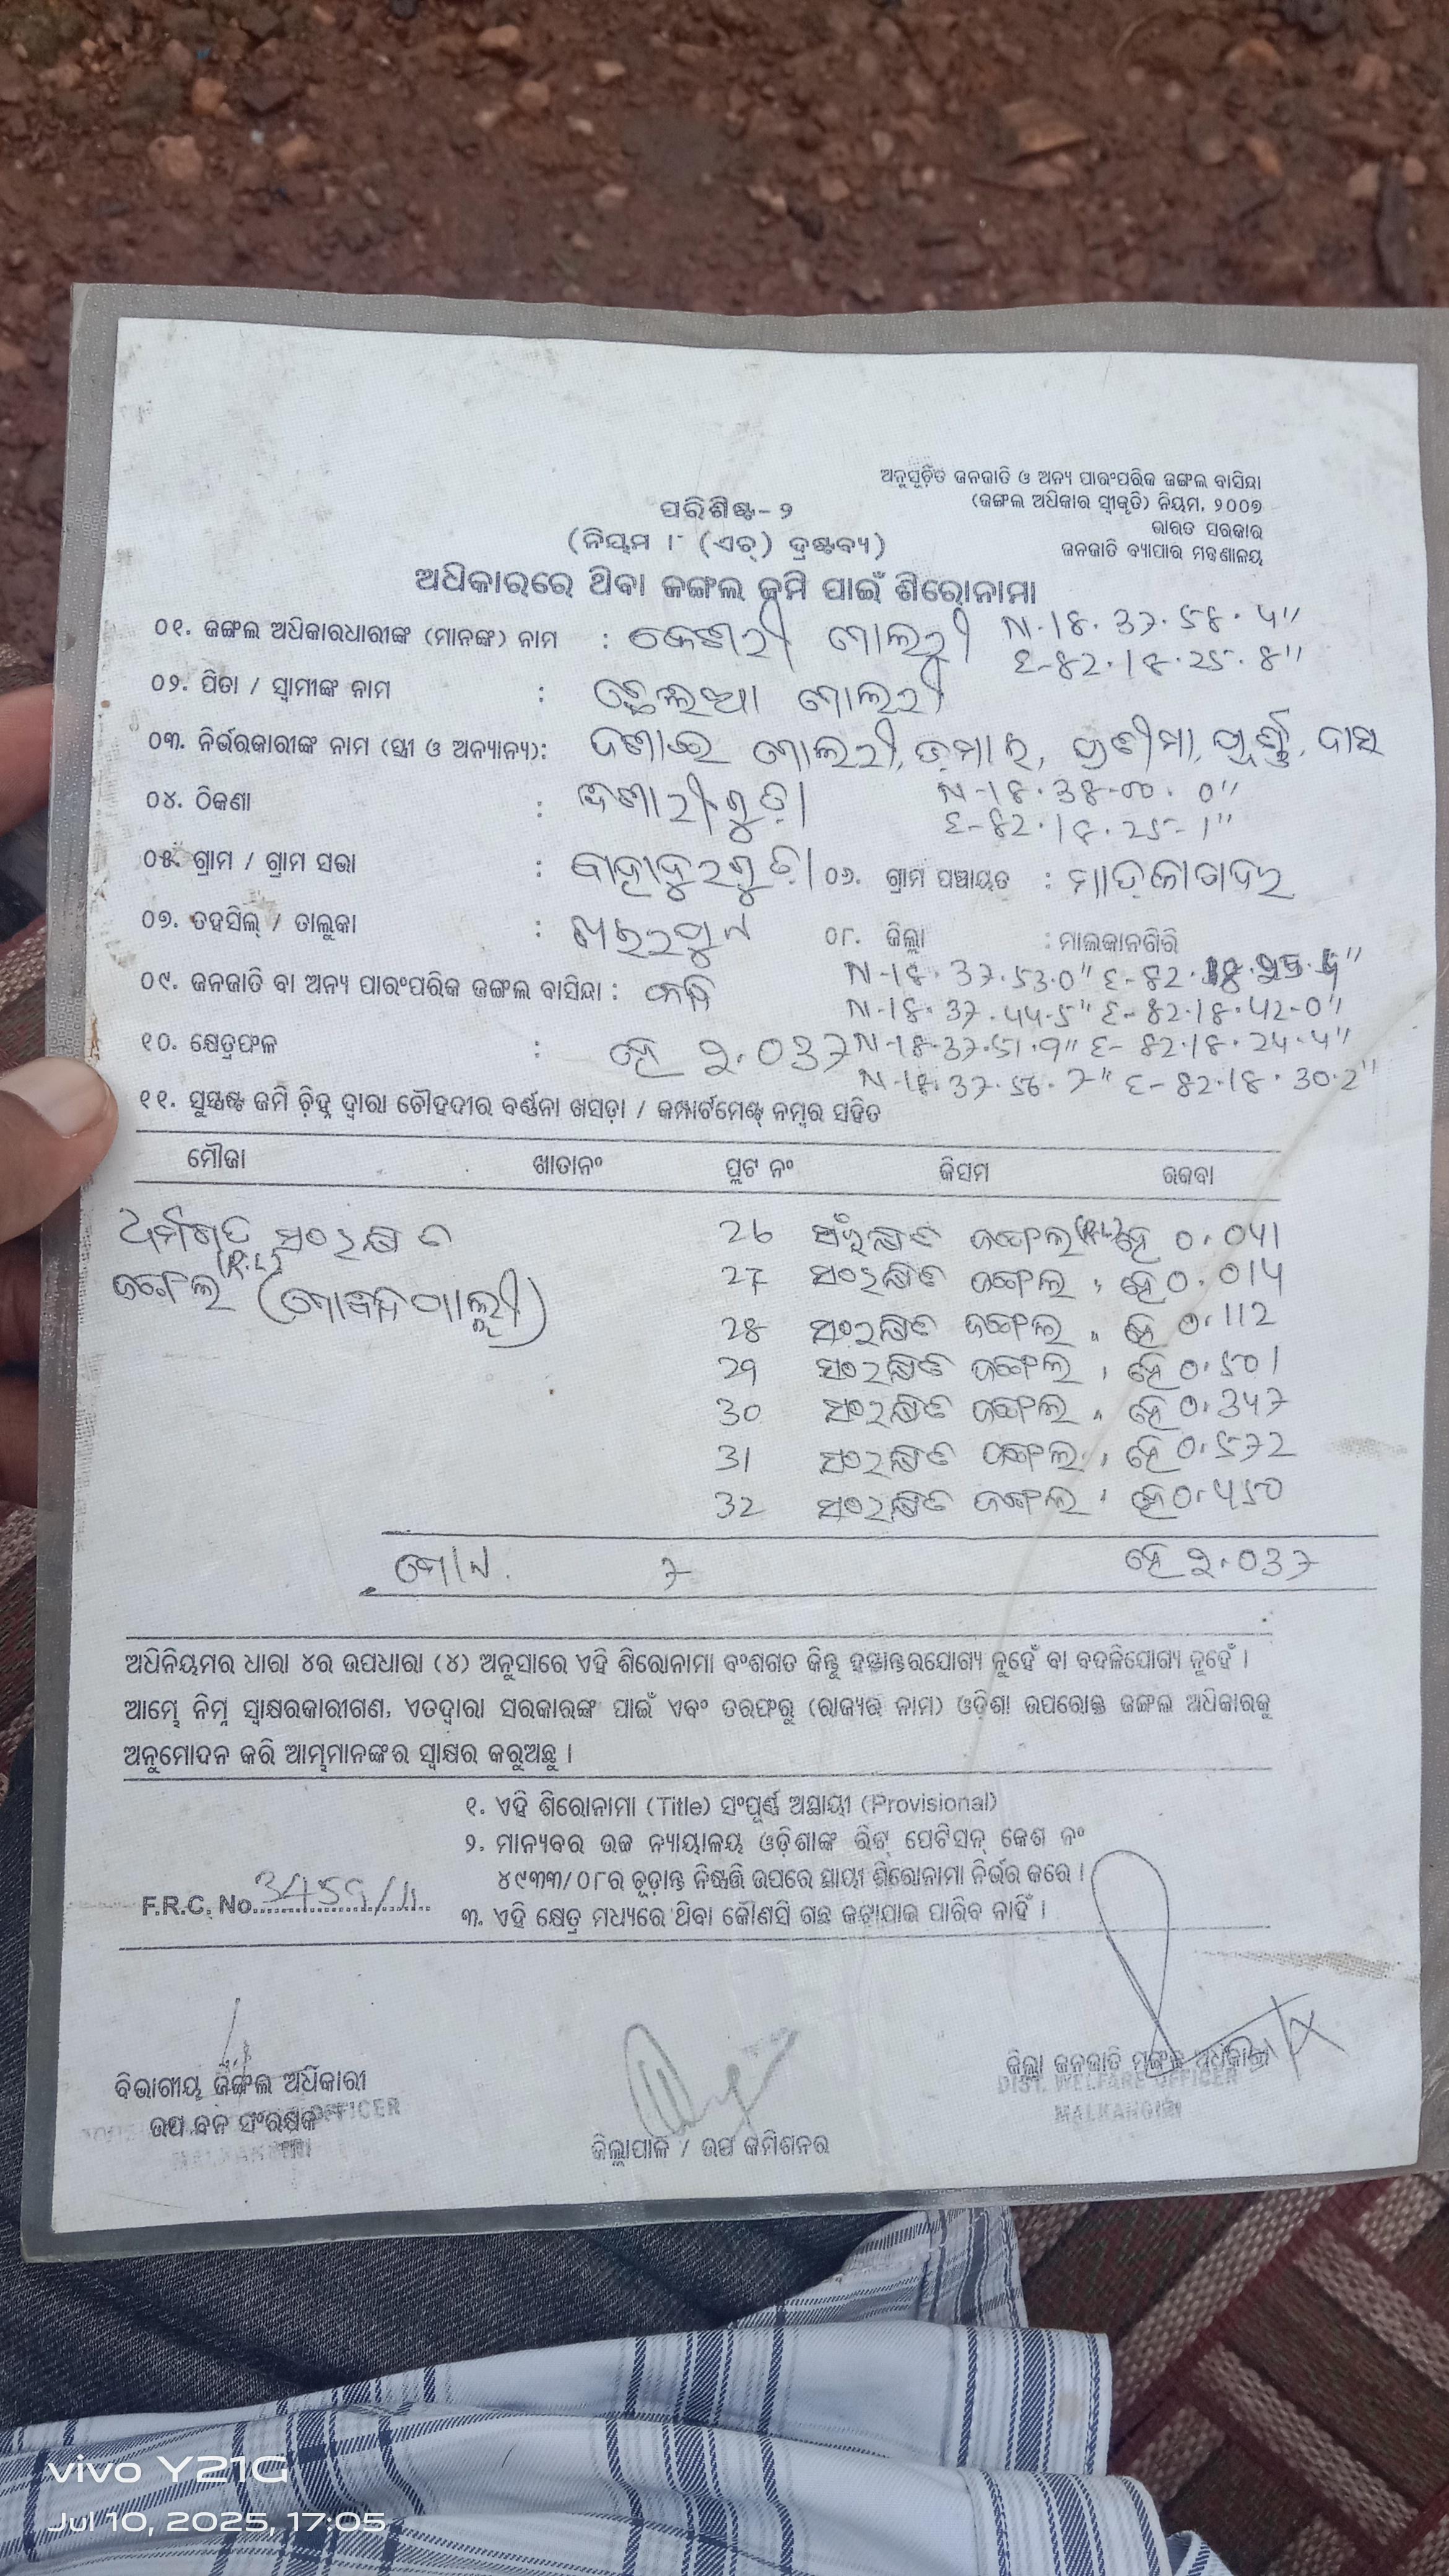 ଅନୁସୂଚିତ ଜନଜାତି ଓ ଅନ୍ୟ ପାରଂପରିକ ଜଙ୍ଗଲ ବାସିନ୍ଦା
(ଜଙ୍ଗଲ ଅଧିକାର ସ୍ୱୀକୃତି) ନିୟମ, ୨୦୦୭
ଭାରତ ସରକାର
ଜନଜାତି ବ୍ୟାପାର ମନ୍ତ୍ରଣାଳୟ
ପରିଶିଷ୍ଟ-୨
(ନିୟମ ୮ (ଏଚ୍) ଦ୍ରଷ୍ଟବ୍ୟ)
ଅଧିକାରରେ ଥିବା ଜଙ୍ଗଲ ଜମି ପାଇଁ ଶିରୋନାମା
୦୧. ଜଙ୍ଗଲ ଅଧିକାରଧାରୀଙ୍କ (ମାନଙ୍କ) ନାମ : N-18.37.58.4"
E-82.18.25.8"
୦୨. ପିତା / ସ୍ୱାମୀଙ୍କ ନାମ :
୦୩. ନିର୍ଭରକାରୀଙ୍କ ନାମ (ସ୍ତ୍ରୀ ଓ ଅନ୍ୟାନ୍ୟ):
୦୪. ଠିକଣା : N-18.38.00.0"
E-82.18.25.1"
୦୫. ଗ୍ରାମ / ଗ୍ରାମ ସଭା : ବାହାଦୁରଗୁଡ଼ା ୦୬. ଗ୍ରାମ ପଞ୍ଚାୟତ :
୦୭. ତହସିଲ୍ / ତାଲୁକା : ଖଇରପୁଟ ୦୮. ଜିଲ୍ଲା : ମାଲକାନଗିରି
N-18.37.53.0" E-82.18
୦୯. ଜନଜାତି ବା ଅନ୍ୟ ପାରଂପରିକ ଜଙ୍ଗଲ ବାସିନ୍ଦା : N-18.37.44.5" E-82.18.42.0"
୧୦. କ୍ଷେତ୍ରଫଳ : ହେ ୨.037 N-18.37.51.9" E-82.18.24.4"
N-18.37.56.7" E-82.18.30.2"
୧୧. ସୁସ୍ପଷ୍ଟ ଜମି ଚିହ୍ନ ଦ୍ୱାରା ଚୌହଦୀର ବର୍ଣ୍ଣନା ଖସଡ଼ା / କମ୍ପାର୍ଟମେଣ୍ଟ୍ ନମ୍ବର ସହିତ
ମୌଜା ଖାତାନଂ ପ୍ଲଟ ନଂ କିସମ ରକବା
ସଂରକ୍ଷିତ 26 ସଂରକ୍ଷିତ ଜଙ୍ଗଲ ହେ ୦.041
ଜଙ୍ଗଲ 27 ସଂରକ୍ଷିତ ଜଙ୍ଗଲ ,, ହେ ୦.014
28 ସଂରକ୍ଷିତ ଜଙ୍ଗଲ ,, ହେ ୦.112
29 ସଂରକ୍ଷିତ ଜଙ୍ଗଲ ,, ହେ ୦.501
30 ସଂରକ୍ଷିତ ଜଙ୍ଗଲ ,, ହେ ୦.347
31 ସଂରକ୍ଷିତ ଜଙ୍ଗଲ ,, ହେ ୦.572
32 ସଂରକ୍ଷିତ ଜଙ୍ଗଲ ,, ହେ ୦.450
ମୋଟ. 7 ହେ ୨.037
ଅଧିନିୟମର ଧାରା ୪ର ଉପଧାରା (୪) ଅନୁସାରେ ଏହି ଶିରୋନାମା ବଂଶଗତ କିନ୍ତୁ ହସ୍ତାନ୍ତରଯୋଗ୍ୟ ନୁହେଁ ବା ବଦଳିଯୋଗ୍ୟ ନୁହେଁ ।
ଆମ୍ଭେ ନିମ୍ନ ସ୍ୱାକ୍ଷରକାରୀଗଣ, ଏତଦ୍ୱାରା ସରକାରଙ୍କ ପାଇଁ ଏବଂ ତରଫରୁ (ରାଜ୍ୟର ନାମ) ଓଡ଼ିଶା ଉପରୋକ୍ତ ଜଙ୍ଗଲ ଅଧିକାରକୁ
ଅନୁମୋଦନ କରି ଆମ୍ଭମାନଙ୍କର ସ୍ୱାକ୍ଷର କରୁଅଛୁ ।
୧. ଏହି ଶିରୋନାମା (Title) ସଂପୂର୍ଣ୍ଣ ଅସ୍ଥାୟୀ (Provisional)
୨. ମାନ୍ୟବର ଉଚ୍ଚ ନ୍ୟାୟାଳୟ ଓଡ଼ିଶାଙ୍କ ରିଟ୍ ପେଟିସନ୍ କେଶ ନଂ
୪୯୩୩/୦୮ର ଚୂଡ଼ାନ୍ତ ନିଷ୍ପତ୍ତି ଉପରେ ସ୍ଥାୟୀ ଶିରୋନାମା ନିର୍ଭର କରେ ।
F.R.C. No.
୩. ଏହି କ୍ଷେତ୍ର ମଧ୍ୟରେ ଥିବା କୌଣସି ଗଛ କଟାଯାଇ ପାରିବ ନାହିଁ ।
ବିଭାଗୀୟ ଜଙ୍ଗଲ ଅଧିକାରୀ
ଉପ ବନ ସଂରକ୍ଷକ
ଜିଲ୍ଲାପାଳ / ଉପ କମିଶନର
ଜିଲ୍ଲା ଜନଜାତି ମଙ୍ଗଳ ଅଧିକାରୀ
DIST. WELFARE OFFICER
MALKANGIRI
vivo Y21G
Jul 10, 2025, 17:05